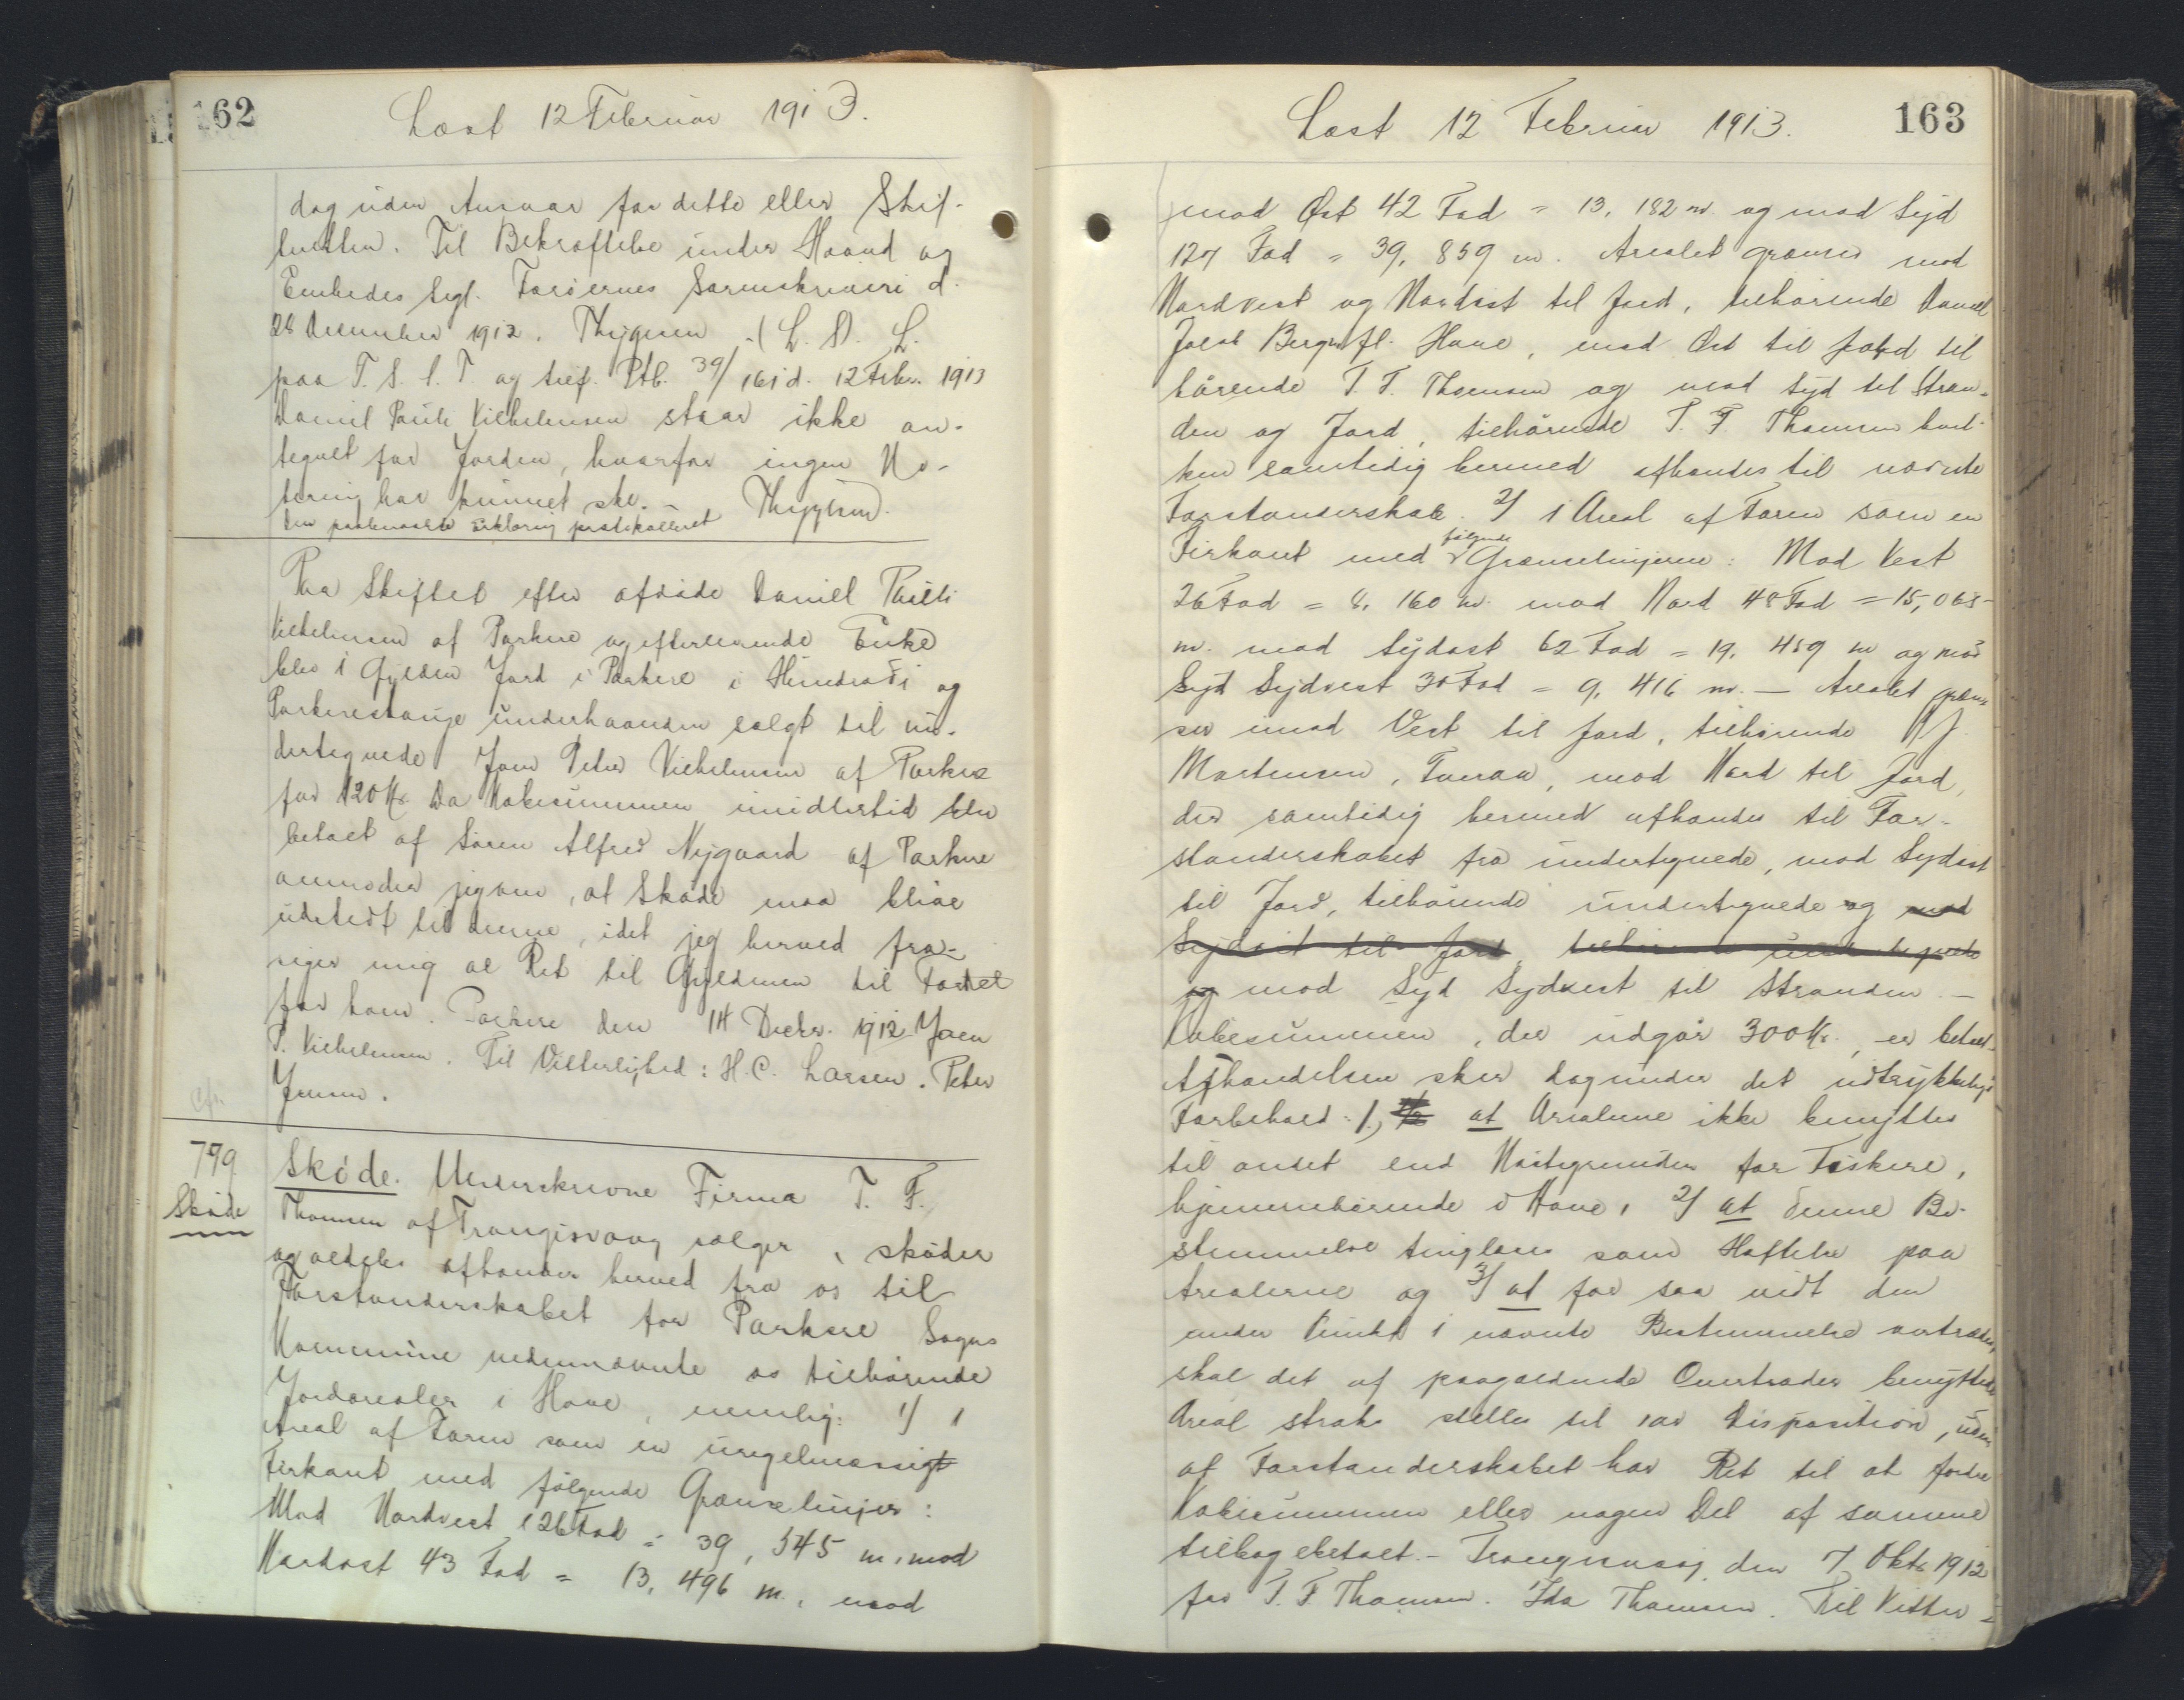 162
Læst 12 Februar 1913.
dog uden Ansvar for dette eller Skif-
teretten. Til Bekræftelse under Haand og
Embedes Segl. Færøernes Sorenskriveri d.
28 December 1912. Thygesen (L. S). L.
paa T. S. l. T. og tref. Ptb. 39/161 d. 12 Febr. 1913
Daniel Pauli Vilhelmsen staar ikke an-
tegnet for Jorden, hvorfor ingen No-
tering har kunnet ske. Thygesen.
den paaberaabte erklæring protokolleret
Paa Skiftet efter afdøde Daniel Pauli
Vilhelmsen af Porkere og efterlevende Enke
blev 1 Gylden Jord i Porkere i Hundraði og
Porkereshauge underhaanden solgt til un-
dertegnede Joen Peter Vilhelmsen af Porkere
for 120 Kr. Da Købesummen imidlertid blev
betalt af Søren Alfred Nygaard af Porkere
anmoder jeg om, at Skøde maa blive
udstedt til denne, idet jeg herved fra-
siger mig al Ret til Gyldenen til Fordel
for ham. Porkere den 14 Decbr. 1912 Joen
P. Vilhelmsen. Til Vitterlighed: H. C. Larsen. Peter
Jensen.
Cfr.
779
Skøde
Skøde. Underskrevne Firma T. F.
Thomsen af Trangisvaag sælger, skøder
og aldeles afhænder herved fra os til
Forstanderskabet for Porkere Sogns
Kommune nedennævnte os tilhørende
Jordarealer i Hove, nemlig: 1/ 1
Areal af Form som en uregelmæssigt
Firkant med følgende Grænselinjer:
Mod Nordvest 126 Fod = 39,545 m, mod
Nordøst 43 Fod = 13,496 m., mod
163
Læst 12 Februar 1913.
mod Øst 42 Fod = 13,182 m. og mod Syd
127 Fod = 39,859 m. Arealet grænser mod
Nordvest og Nordøst til Jord, tilhørende Daniel
Jacob Bergs fl. Hove, mod Øst til Jord til
hørende T. F. Thomsen og mod Syd til Stran-
den og Jord, tilhørende T. F. Thomsen hvil-
ken samtidig hermed afhændes til nævnte
Forstanderskab. 2/ 1 Areal af Form som en
Firkant med følgende Grænselinjerne: Mod Vest
26 Fod = 8,160 m. mod Nord 48 Fod = 15,065-
m. mod Sydøst 62 Fod = 19,459 m og mod
Syd Sydvest 30 Fod = 9,416 m. — Arealet græn-
ser imod Vest til Jord, tilhørende
Mortensen, Tvøraa, mod Nord til Jord,
der samtidig hermed afhændes til For-
standerskabet fra undertegnede, mod Sydøst
til Jord, tilhørende undertegnede og mod
Sydøst til Jord, tilhørende undertegnede
og mod Syd Sydvest til Stranden. —
Købesummen, der udgør 300 Kr., er betalt.
Afhændelsen sker dog under det udtrykkelige
Forbehold: 1) at Arealerne ikke benyttes
til andet end Nøstegrunde for Fiskere,
hjemmehørende i Hove, 2/ at denne Be-
stemmelse tinglæses som Hæftelse paa
Arealerne og 3/ at for saa vidt den
under Punkt 1 nævnte Bestemmelse overtrædes,
skal det af paagældende Overtræder benyttede
Areal straks stilles til vor Disposition, uden
at Forstanderskabet har Ret til at fordre
Købesummen eller nogen Del af samme
tilbagebetalt. - Trangisvaag, den 7 Oktr 1912
for T. F Thomsen. Ida Thomsen. Til Vitter-